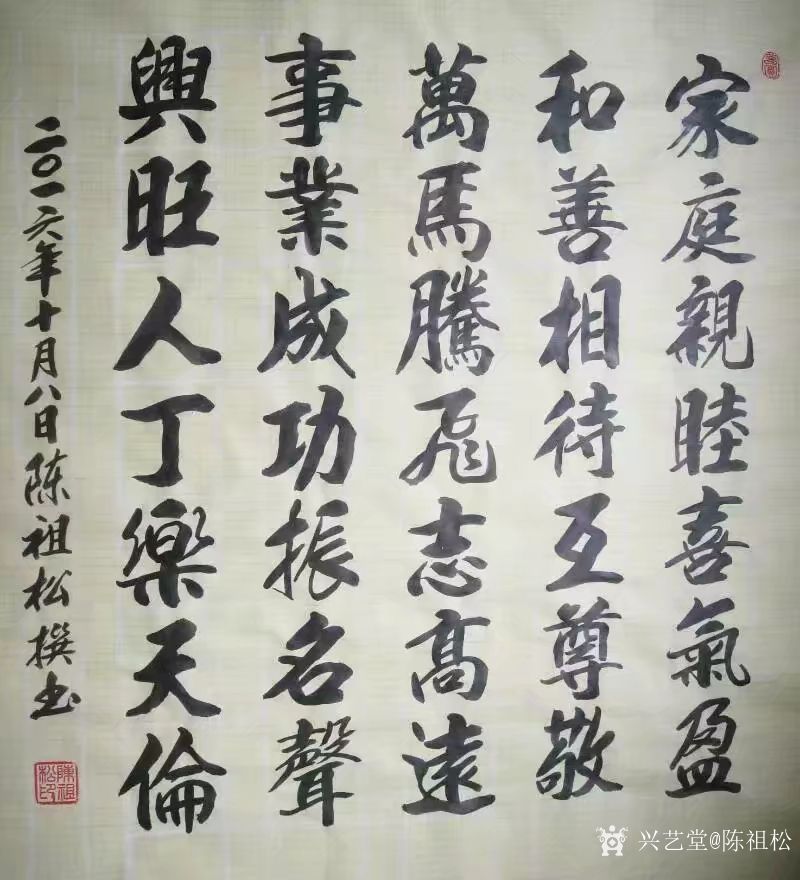 家庭親睦喜氣盈
和善相待互尊敬
萬馬騰飛志高遠
事業成功振名聲
興旺人丁樂天倫
二〇一六年十月八日陈祖松撰书
陳祖松印
兴艺堂@陈祖松